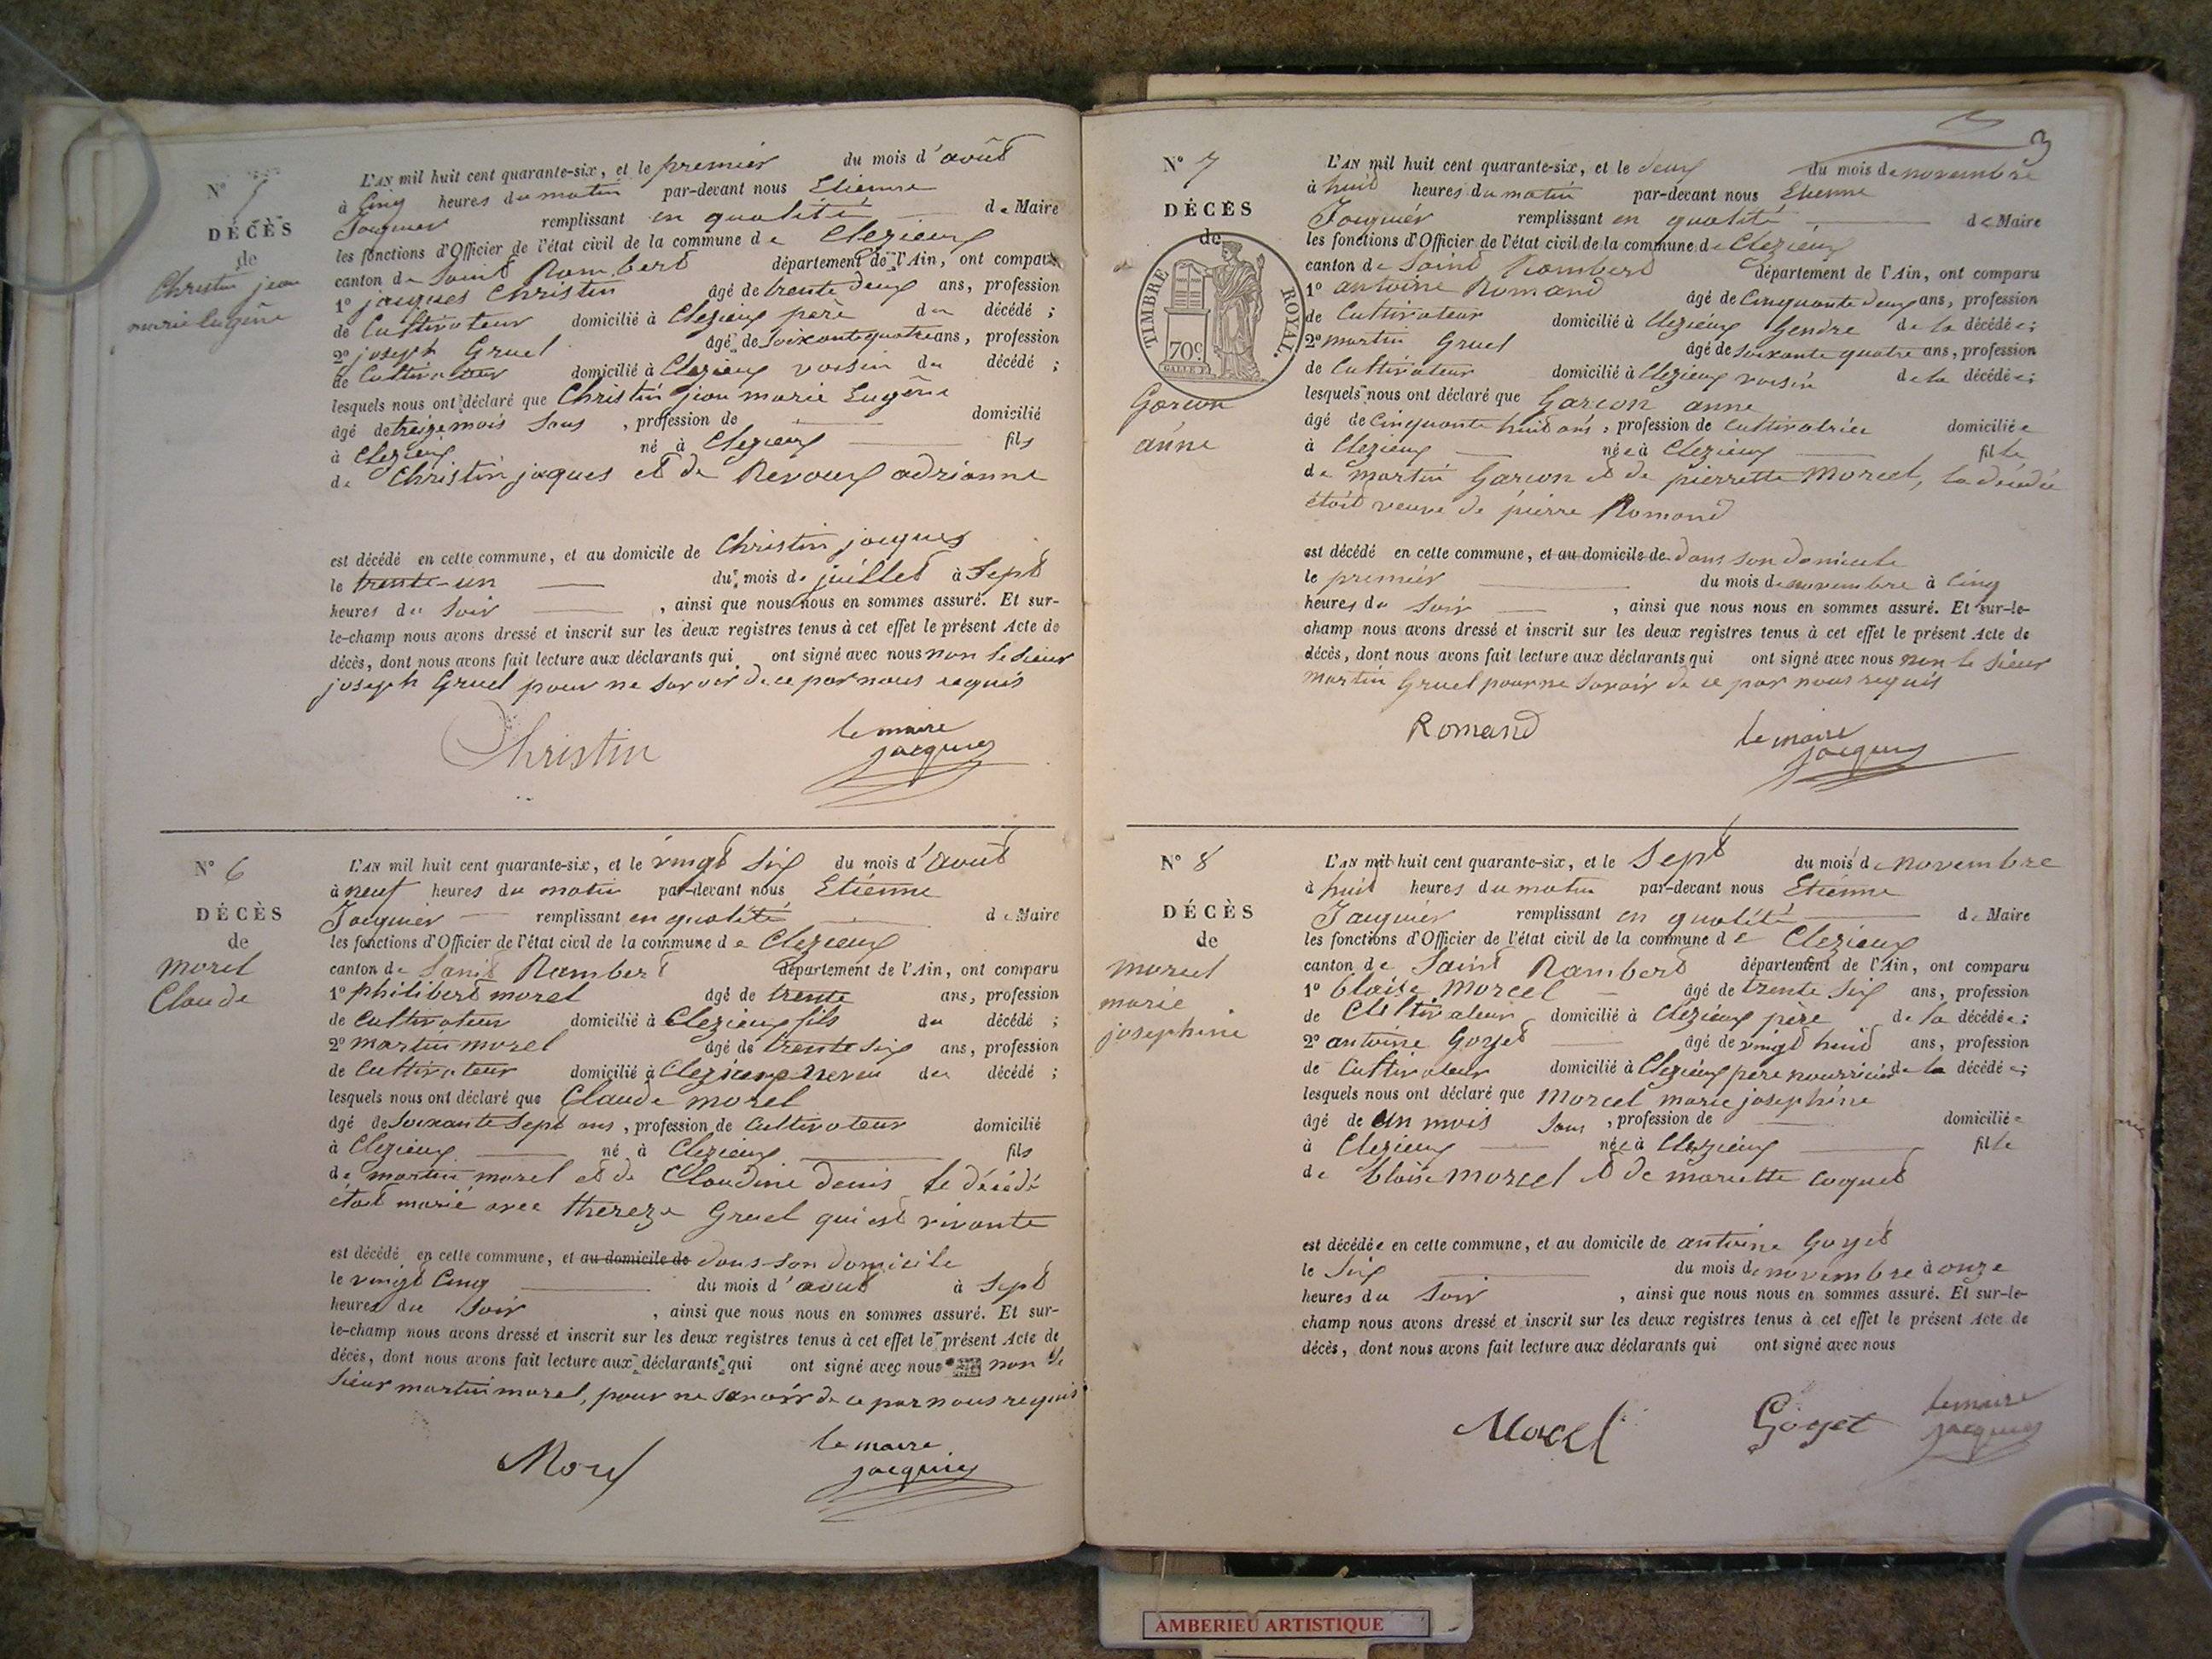 N° 5
DÉCÈS
de
Christin jean
marie Eugène
L'AN mil huit cent quarante-six, et le premier du mois d'août
à Cinq heures du matin par-devant nous Etienne
Jacquier remplissant en qualité de Maire
les fonctions d'Officier de l'état civil de la commune de Clezieux
canton de Saint Rambert département de l'Ain, ont comparu
1° jacques Christin âgé de trente deux ans, profession
de Cultivateur domicilié à Clezieux père du décédé ;
2° joseph Gruel âgé de soixante quatre ans, profession
de Cultivateur domicilié à Clezieux voisin du décédé ;
lesquels nous ont déclaré que Christin jean marie Eugène
âgé de treize mois Sans , profession de domicilié
à Clezieux né à Clezieux fils
de Christin jaques et de Revoux adrianne
est décédé en cette commune, et au domicile de Christin jacques
le trente-un du mois de juillet à Sept
heures du Soir , ainsi que nous nous en sommes assuré. Et sur-
le-champ nous avons dressé et inscrit sur les deux registres tenus à cet effet le présent Acte de
décès, dont nous avons fait lecture aux déclarants qui ont signé avec nous non le sieur
joseph Gruel pour ne savoir de ce par nous requis
Christin
le maire
jacquier
N° 6
DÉCÈS
de
morel
Claude
L'AN mil huit cent quarante-six, et le vingt Six du mois d'août
à neuf heures du matin par-devant nous Etienne
Jacquier remplissant en qualité de Maire
les fonctions d'Officier de l'état civil de la commune de Clezieux
canton de Sanit Rambert département de l'Ain, ont comparu
1° philibert morel âgé de trente ans, profession
de Cultivateur domicilié à Clezieux fils du décédé ;
2° martin morel âgé de trente Six ans, profession
de Cultivateur domicilié à Clezieux neveu du décédé ;
lesquels nous ont déclaré que Claude morel
âgé de Soixante Sept ans , profession de Cultivateur domicilié
à Clezieux né à Clezieux fils
de martin morel et de Claudine denis le décédé
était marié avec thereze Gruel qui est vivante
est décédé en cette commune, et au domicile de dans son domicile
le vingt Cinq du mois d'août à Sept
heures du Soir , ainsi que nous nous en sommes assuré. Et sur-
le-champ nous avons dressé et inscrit sur les deux registres tenus à cet effet le présent Acte de
décès, dont nous avons fait lecture aux déclarants qui ont signé avec nous non le
Sieur martin morel, pour ne savoir de ce par nous requis
Morel
le maire
jacquier
3
N° 7
DÉCÈS
de
TIMBRE ROYAL.
70c
Garcon
anne
L'AN mil huit cent quarante-six, et le deux du mois de novembre
à huit heures du matin par-devant nous Etienne
Jacquier remplissant en qualité de Maire
les fonctions d'Officier de l'état civil de la commune de Clezieux
canton de Saint Rambert département de l'Ain, ont comparu
1° antoine Romand âgé de Cinquante deux ans, profession
de Cultivateur domicilié à Clezieux Gendre de la décédée ;
2° martin Gruel âgé de soixante quatre ans, profession
de Cultivateur domicilié à Clezieux voisin de la décédée ;
lesquels nous ont déclaré que Garcon anne
âgé de Cinquante huit ans , profession de Cultivatrice domiciliée
à Clezieux née à Clezieux fille
de martin Garcon et de pierrette Morcel, la décédée
était veuve de pierre Romand
est décédé en cette commune, et au domicile de dans son domicile
le premier du mois de novembre à Cinq
heures du Soir , ainsi que nous nous en sommes assuré. Et sur-le-
champ nous avons dressé et inscrit sur les deux registres tenus à cet effet le présent Acte de
décès, dont nous avons fait lecture aux déclarants qui ont signé avec nous non le sieur
martin Gruel pour ne savoir de ce par nous requis
Romand
le maire
jacquier
N° 8
DÉCÈS
de
morcel
marie
josephine
L'AN mil huit cent quarante-six, et le Sept du mois de novembre
à huit heures du matin par-devant nous Etienne
Jacquier remplissant en qualité de Maire
les fonctions d'Officier de l'état civil de la commune de Clezieux
canton de Saint Rambert département de l'Ain, ont comparu
1° blaise Morcel âgé de trente Six ans, profession
de Cultivateur domicilié à Clezieux père de la décédée ;
2° antoine Goyet âgé de vingt huit ans, profession
de Cultivateur domicilié à Clezieux père nourricier de la décédée ;
lesquels nous ont déclaré que Morcel marie josephine
âgé de un mois Sans , profession de domiciliée
à Clezieux née à Clezieux fille
de blaise Morcel et de mariette Coquet
est décédée en cette commune, et au domicile de antoine Goyet
le Six du mois de novembre à onze
heures du Soir , ainsi que nous nous en sommes assuré. Et sur-le-
champ nous avons dressé et inscrit sur les deux registres tenus à cet effet le présent Acte de
décès, dont nous avons fait lecture aux déclarants qui ont signé avec nous
Morcel
Goyet
le maire
jacquier
AMBERIEU ARTISTIQUE